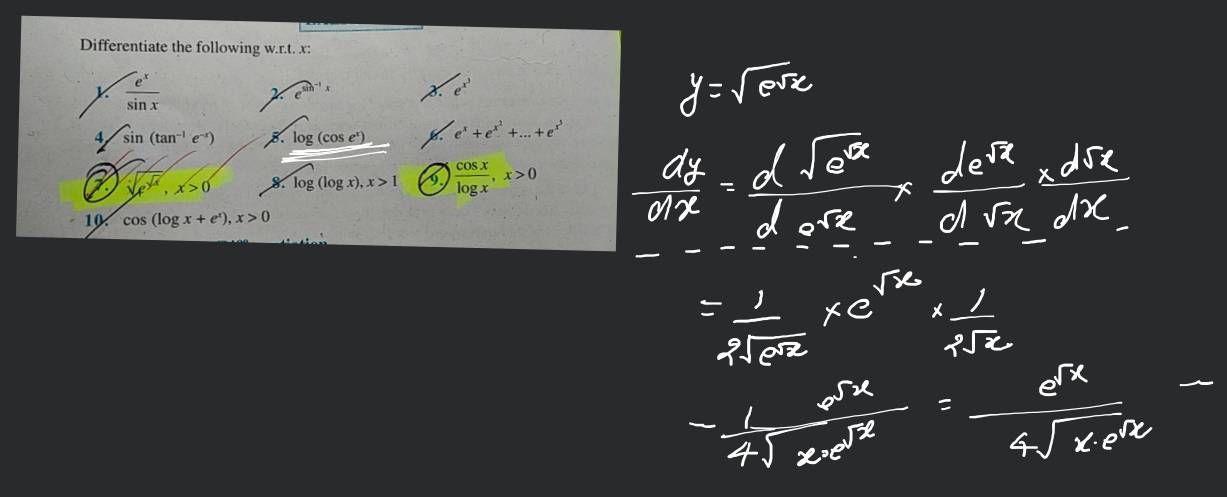 Differentiate the following w.r.t. x:
1. e^x / sin x
2. e^{sin^{-1} x}
3. e^{x^3}
4. sin (tan^{-1} e^{-x})
5. log (cos e^x)
6. e^x + e^{x^2} + ... + e^{x^5}
7. √(e^{√x}), x > 0
8. log (log x), x > 1
9. cos x / log x, x > 0
10. cos (log x + e^x), x > 0
y = √(e^{√x})
dy/dx = d √(e^{√x}) / d e^{√x} × d e^{√x} / d √x × d √x / dx
= 1 / 2√(e^{√x}) × e^{√x} × 1 / 2√x
- 1 e^{√x} / 4√(x · e^{√x}) = e^{√x} / 4√(x · e^{√x})